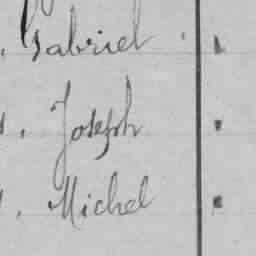 Gabriel
Joseph
Michel